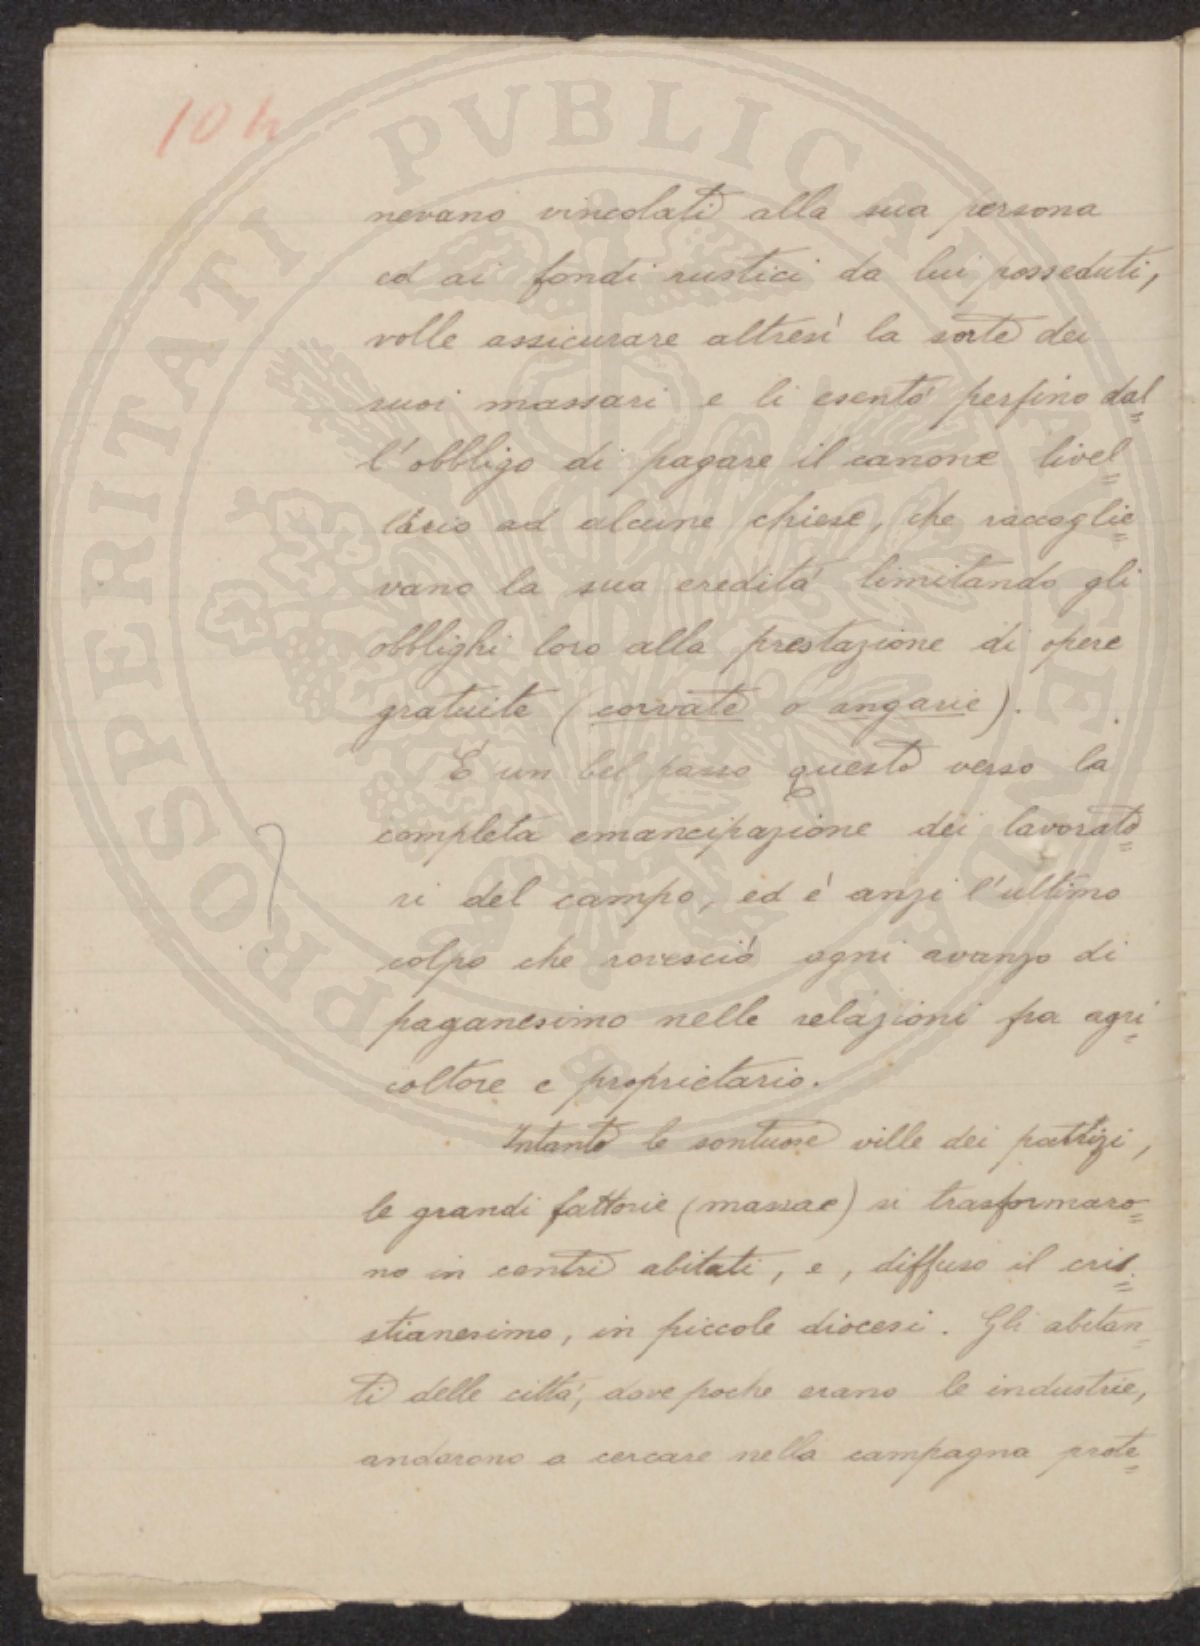 104
nevano vincolati alla sua persona
ed ai fondi rustici da lui posseduti,
volle assicurare altresì la sorte dei
suoi massari e li esentò perfino dal=
l'obbligo di pagare il canone livel=
lario ad alcune chiese, che raccoglie=
vano la sua eredità limitando gli
obblighi loro alla prestazione di opere
gratuite (corvate o angarie).
È un bel passo questo verso la
completa emancipazione dei lavorato=
ri del campo, ed è anzi l'ultimo
colpo che rovesciò ogni avanzo di
paganesimo nelle relazioni fra agri=
coltore e proprietario.
Intanto le sontuose ville dei patrizi,
le grandi fattorie (massae) si trasformaro=
no in centri abitati, e, diffuso il cris=
stianesimo, in piccole diocesi. Gli abitan=
ti delle città, dove poche erano le industrie,
andarono a cercare nella campagna prote=
PROSPERITATI PVBLICAE AVGENDAE